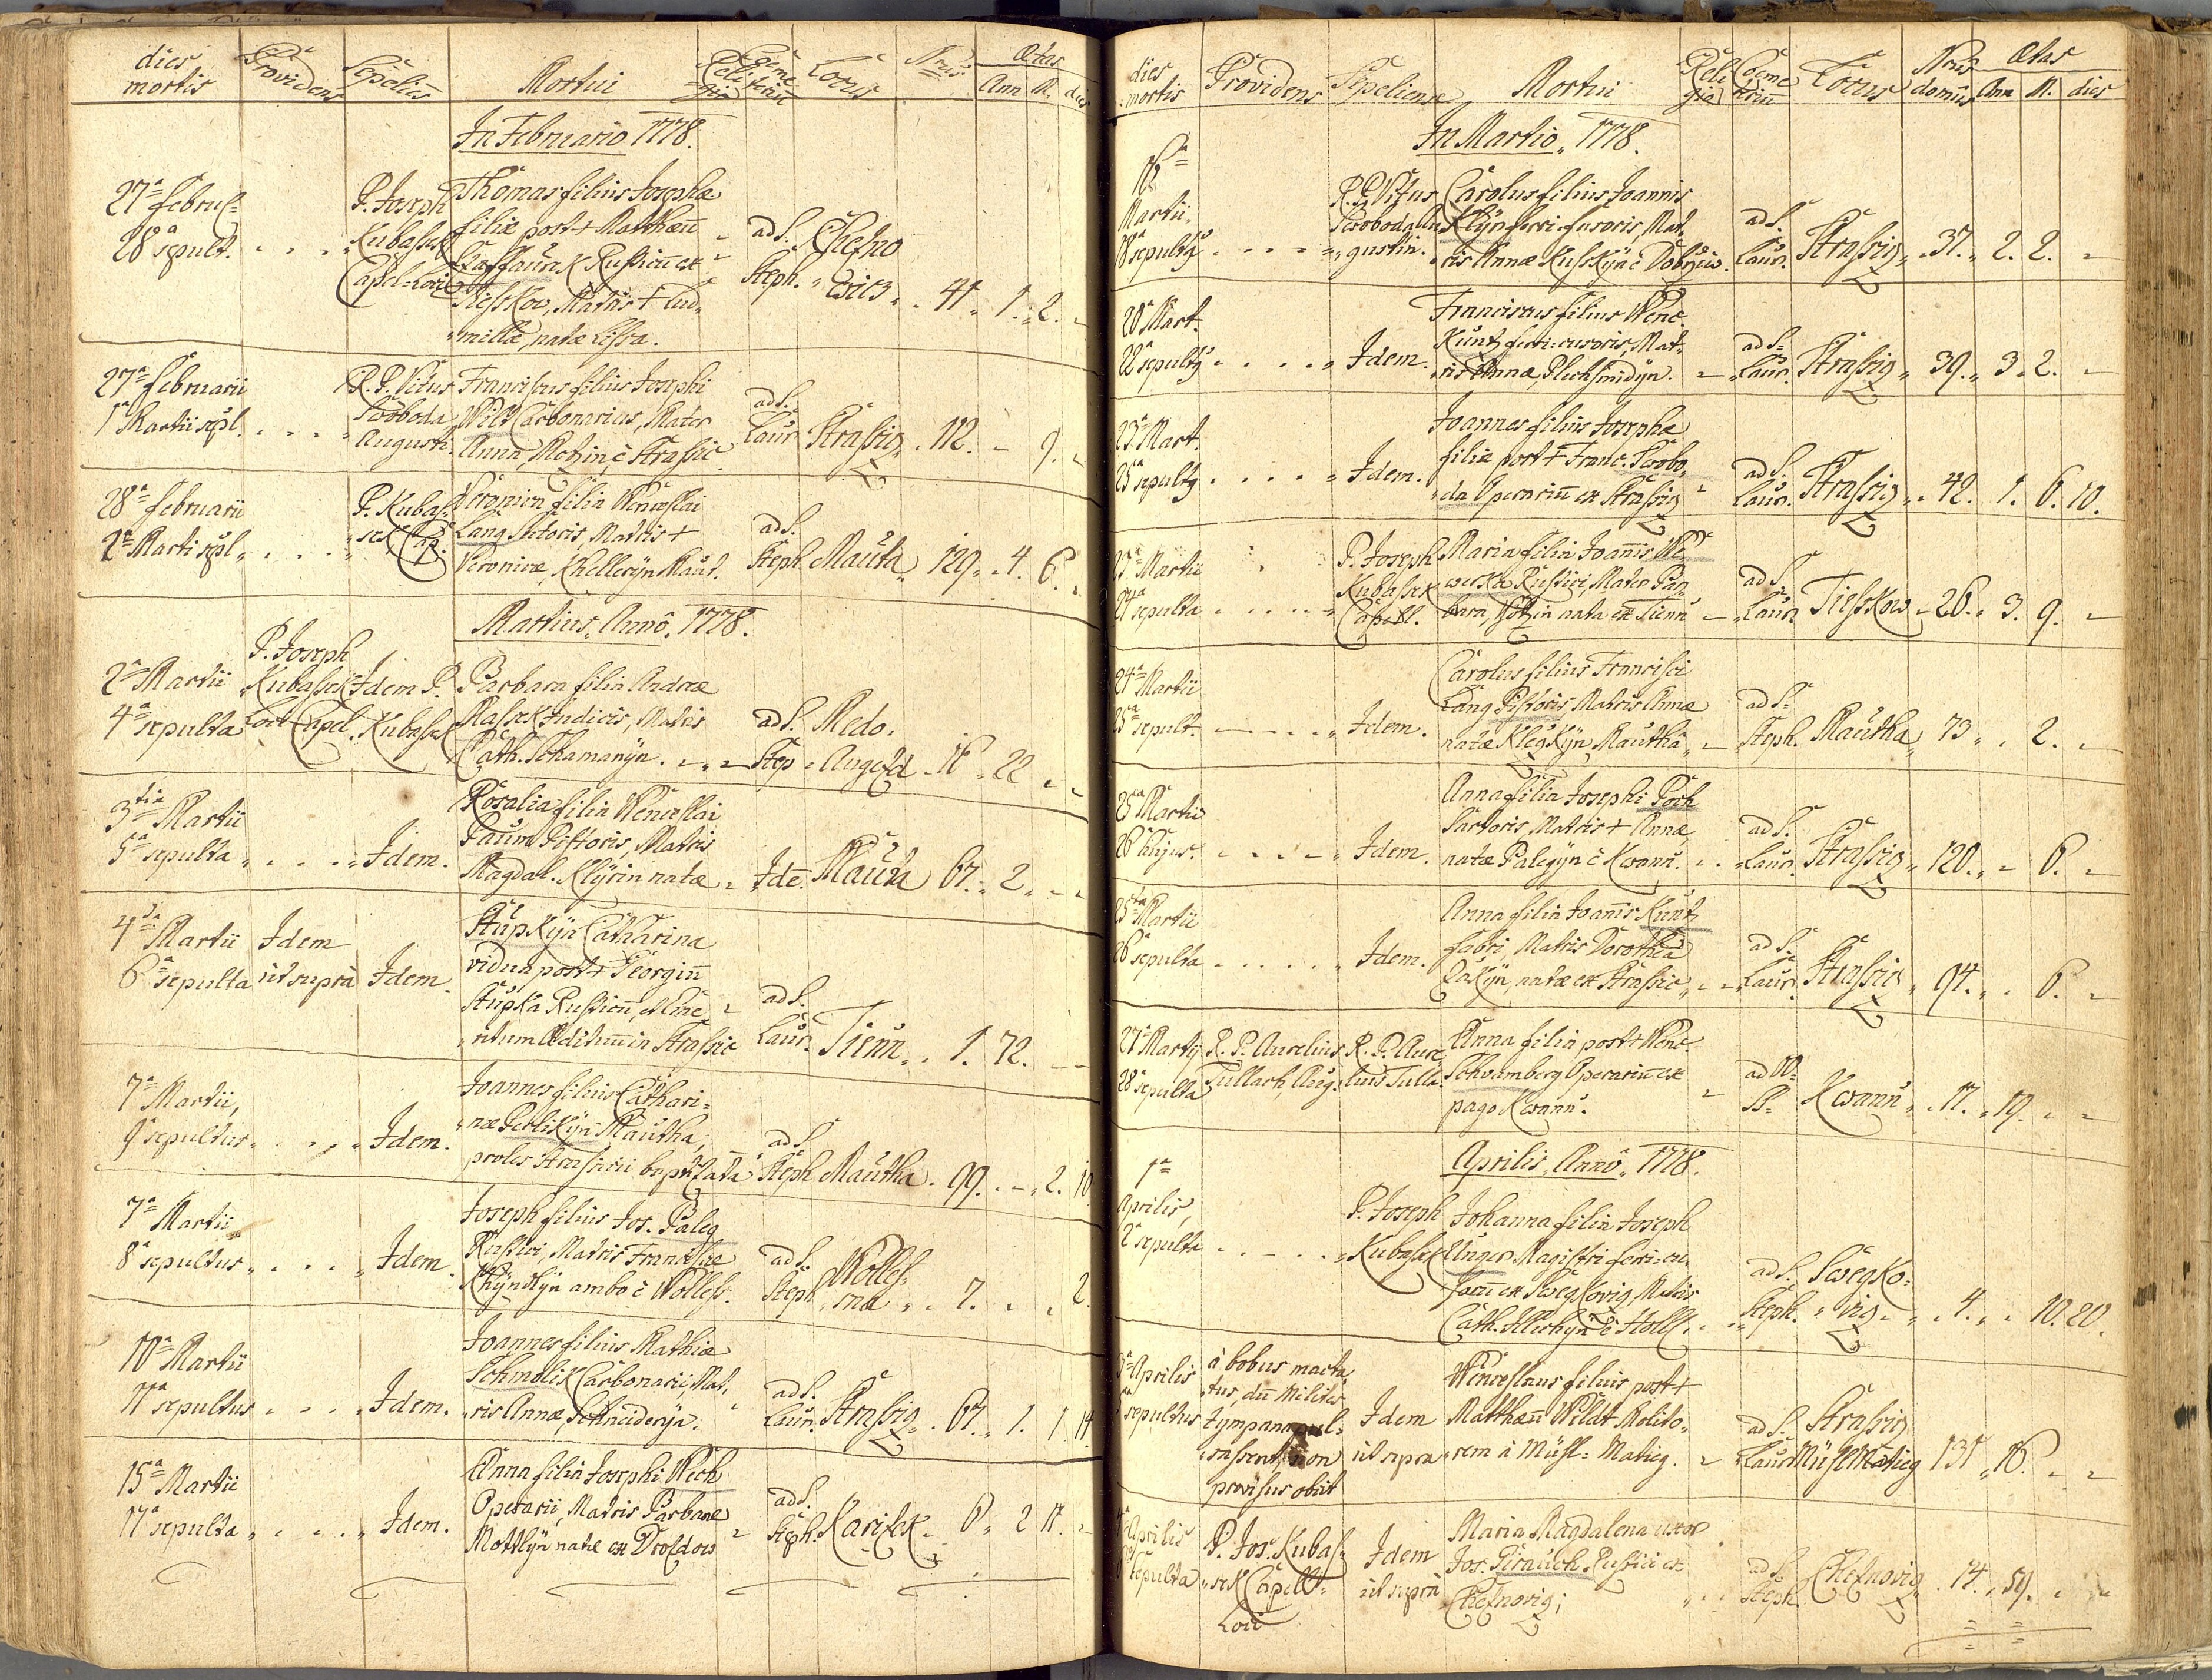 dies mortis Providens Sepeliens Mortui Religio Coemeterium Locus Nrus Ætas
Ann M. dies
In Februario 1778.
27a febru=
28a sepult.
P. Joseph
Kubassek
Capel-Loci
Thomas filius Josephæ
filiæ post + Matthæu
Rusticu ex
Matris + Lud„
„millæ, natæ Lissa.
ad S.
Steph.
Chesno
wics „ 41 „ 1. „ 2.
27a februarii
1a Martii sepl.
R. P. Vitus
Swoboda
Augusti.
Franciscus filius Josephi
Wild Carbonarius, Mater
Anna, Motzin, è Strassic
ad S.
Laur.
Strassig „ 112. - 9.
28a februarii
2a Marti sepl
P. Kubas=
sek Cap.
Veronica filia Wenceslai
Lang Matris +
Veronicæ, Khelleryn Maut.
ad S.
Steph
Mauta „ 129 „ 4. 6.
Martius, Annô, 1778.
2a Martii
4a sepulta
P. Joseph
Kubassek
Loci Capel.
Idem P.
Kubassek
Barbara filia Andreæ
Massek Judicis, Matris
Cath. Schamanyn.
ad S.
Step
Medo„
Augezd „ 16 „ 22
3tia Martii
5a sepulta
Idem.
Rosalia filia Wenceslai
Paum Pistoris, Matris
Magdal. Klyrin natæ
Idē. Mauta 67. „ 2
4ta Martii
6a sepulta
Idem
ut supra
Idem.
Stupkyn Catharina
vidua post + Georgiu
Stupka Rusticu, Eme„
„ritum Ædituum in Strassic
ad S.
Laur.
Tienn „ 1. 72.
7a Martii,
9a sepultus
Idem.
Joannes filius Cathari=
næ Petlikyn Mautha,
proles Strassicii baptizata
ad S.
Steph
Mautha. 99. - „ 2. 10
7a Martii
8a sepultus
Idem.
Joseph filius Jos. Paleg
Rustici, Matris Franciscæ
Khyndlyn ambo è Wolless.
ad S.
Steph
Wolles=
sna „ 7. „ 2.
10a Martii
11a sepultus
Idem.
Joannes filius Mathiæ
Schmolik Carbonarii, Mat„
„ris Annæ, Schneideryn.
ad S.
Laur.
Strassig „ 67. „ 1. 1. 14
15a Martii
17a sepulta
Idem.
Anna filia Josephi Wech
Operarii, Matris Barbaræ
Mottlyn natæ ex Drozdow
ad S.
Steph.
Karizek. 6 „ 2 11.
dies mortis Providens Sepeliens Mortui Religio Coemeterium Locus Nrus domus Ætas
Ann M. dies
In Martio, 1778.
16a
Martii.
18a sepultus
R. P. Vitus
Swoboda Au
„gustin.
Carolus filius Joannis
Klyn ferri-fusoris, Mat„
„ris Annæ Kusskyn è Dobrziw.
ad S.
Laur.
Strassig „ 37. „ 2. 2.
20a Mart.
22a sepultus
Idem.
Franciscus filius Wenc.
Kuntz ferri-cusoris, Mat„
„ris Annæ, Plechsmidyn.
ad S=
Laur.
Strassig „ 39. „ 3. 2.
23a Mart.
25a sepultus
Idem.
Joannes filius Josephæ
filiæ post + Franc. Swobo„
„da Operariu ex Strassig
ad S.
Laur.
Strassig „ 42. 1. 6. 10.
23a Martii
24a sepulta
P. Joseph
Kubassek
Capell.
Maria filia Joannis We
werka Rustici, Mater Bar„
bara, nata ex Tienn
ad S.
Laur.
Tiesskow - 26. „ 3. 9.
24a Martii
25a sepult.
Idem.
Carolus filius Francisci
Lang Pistoris Matris Annæ
natæ Klegkyn, Mautha
ad S=
Steph.
Mautha, 73 „ 2.
25a Martii
26a hujus.
Idem.
Anna filia Josephi Poch
Sartoris, Matris + Annæ
natæ Palegyn è Kwann.
ad S.
Laur.
Strassig „ 120. „ - 6.
25ta Martii
26a sepulta
Idem.
Anna filia Joannis Kuntz
fabri, Matris Dorothea
natæ ex Strassic
ad S.
Laur.
Strassic „ 94. „ 6.
27a Martij
28a sepulta
R. P. Aurelius
Tullach, Aug.
R. P. Aure
lius Tulla.
Anna filia post + Wenc.
Schwamberg Operariu ex
pago Kwann.
ad OO=
SS=
Kwann „ 17. „ 19.
Aprilis, Annô, 1778.
1a
Aprilis,
2a sepulta
P. Joseph
Kubassek
Johanna filia Joseph
Unger Magistri ferri-cu„
soru ex Swegkovig, Matris
Cath. è Holl.
ad S.
Steph.
Swegko=
„vig „ 4. „ 10. 20.
3a Aprilis
5a sepultus
à bobus macta„
„tus, du Milites
tympana pul=
„sassent, non
provisus obiit
Idem
ut supra
Wenceslaus filius post +
Matthæu Wildt Molito„
„rem à Mühl= Matieg.
ad S.
Laur
Strassig
Mühl Matieg 131 „ 16.
4a Aprilis
6a sepulta
P. Jos. Kubas=
„sek Capell=
Loci
Idem
ut supra
Maria Magdalena uxor
Jos. Pernuch. Rustici ex
Cheznovig;
ad S.
Steph.
Cheznovig „ 14. „ 59.